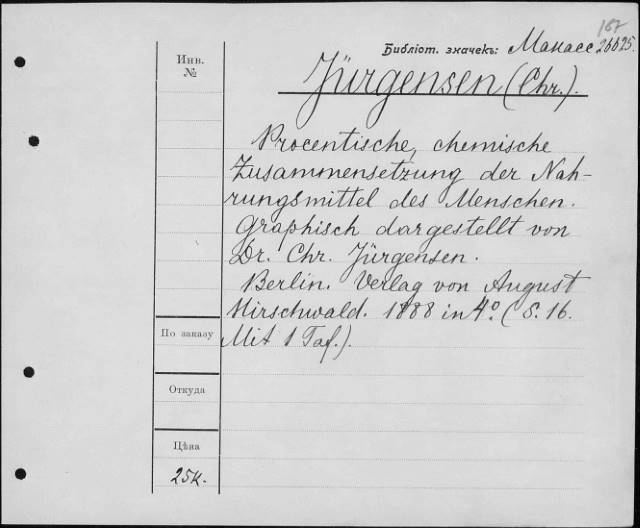 167
Библіот. значекъ: Манасс 26625.
Инв.
№
Jürgensen (Chr.).
Procentische, chemische
Zusammensetzung der Nah-
rungsmittel des Menschen.
Graphisch dargestellt von
Dr. Chr. Jürgensen.
Berlin. Verlag von August
Hirschwald. 1888 in 4° (S. 16.
Mit 1 Taf.).
По заказу
Откуда
Цѣна
25к.